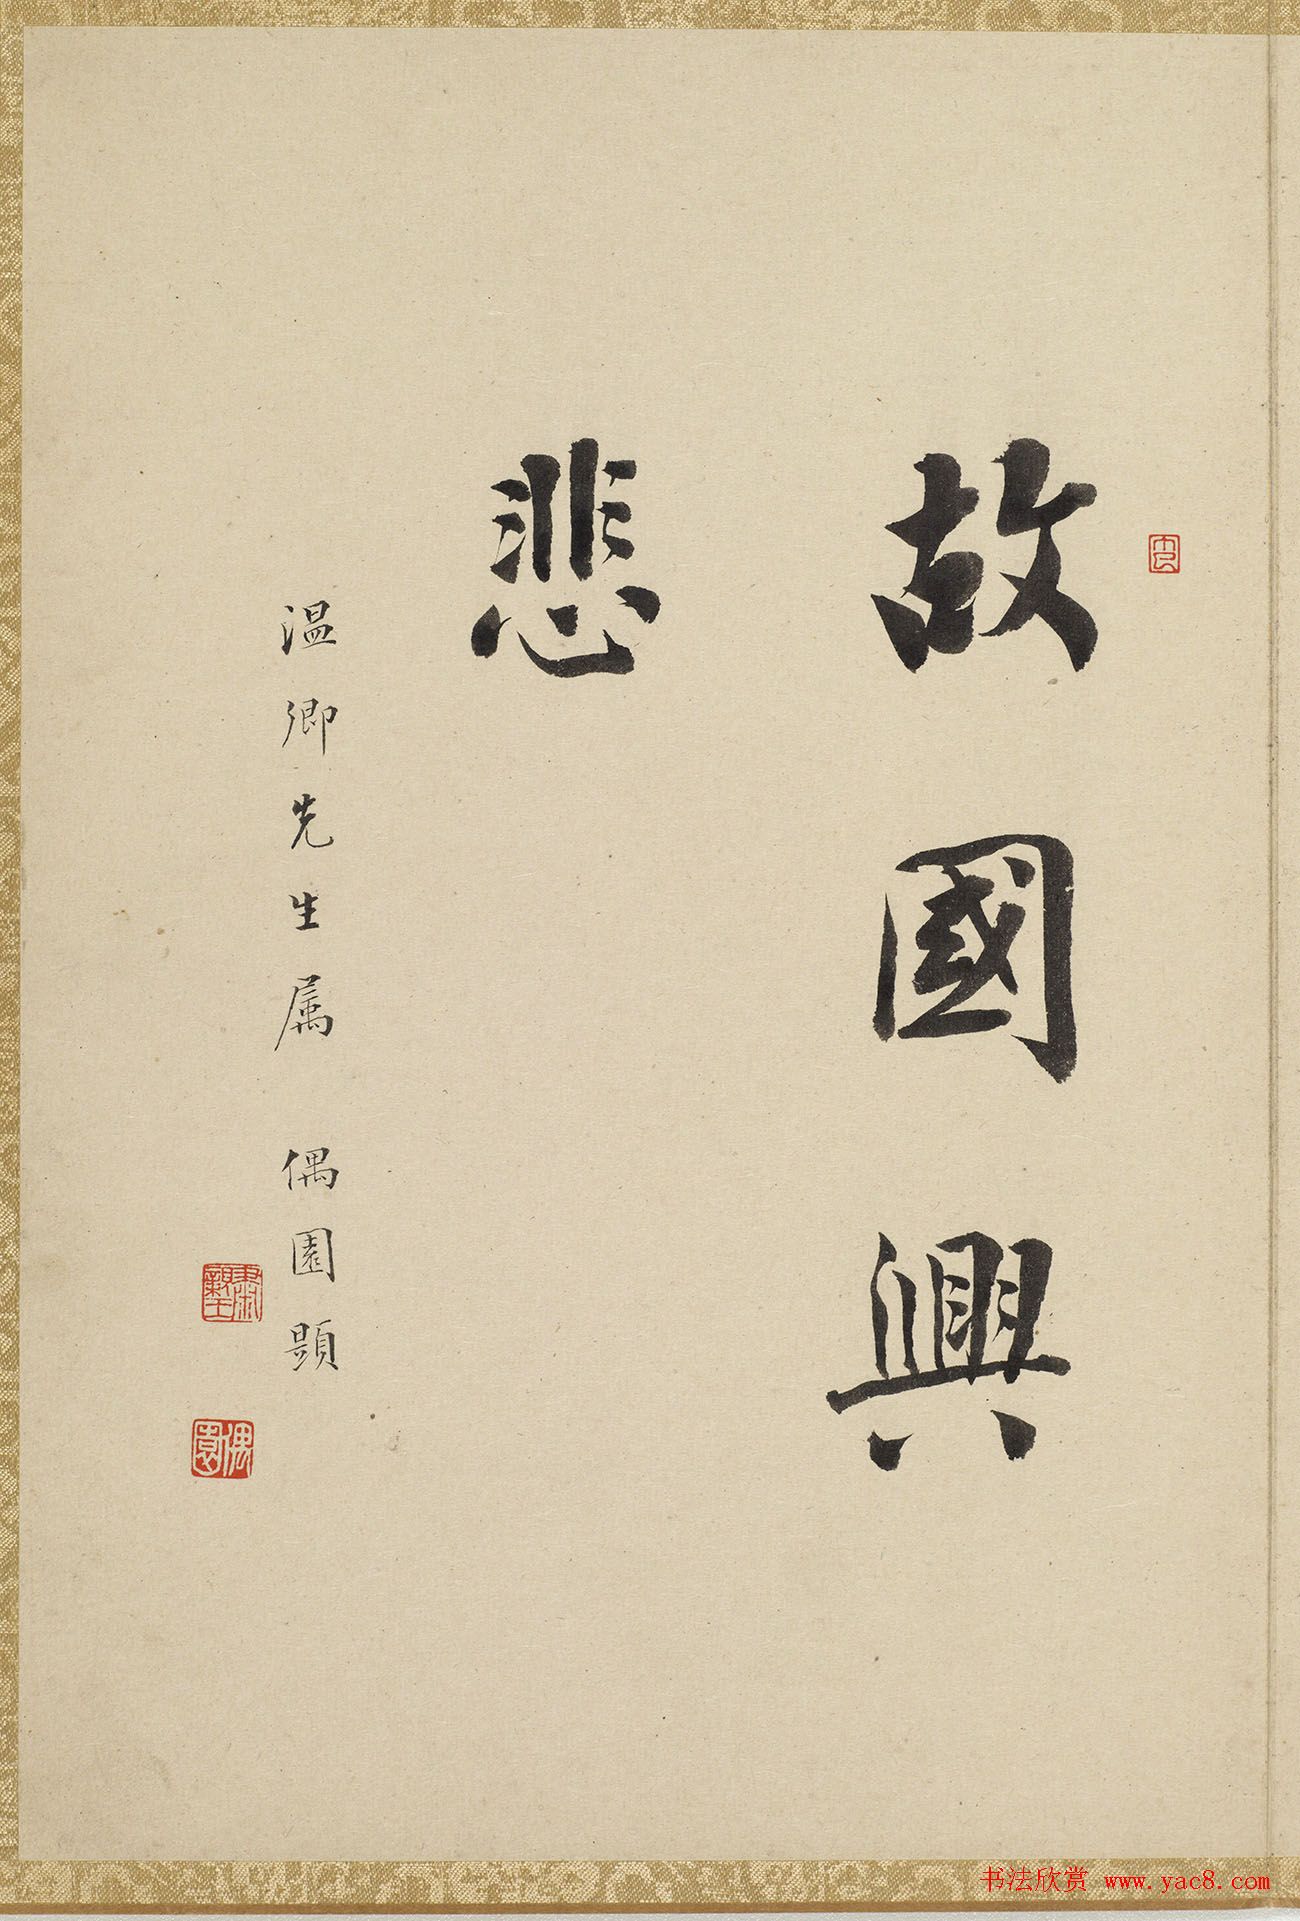 故國興
悲
温卿先生属 偶園題
偶園
书法欣赏 www.yac8.com